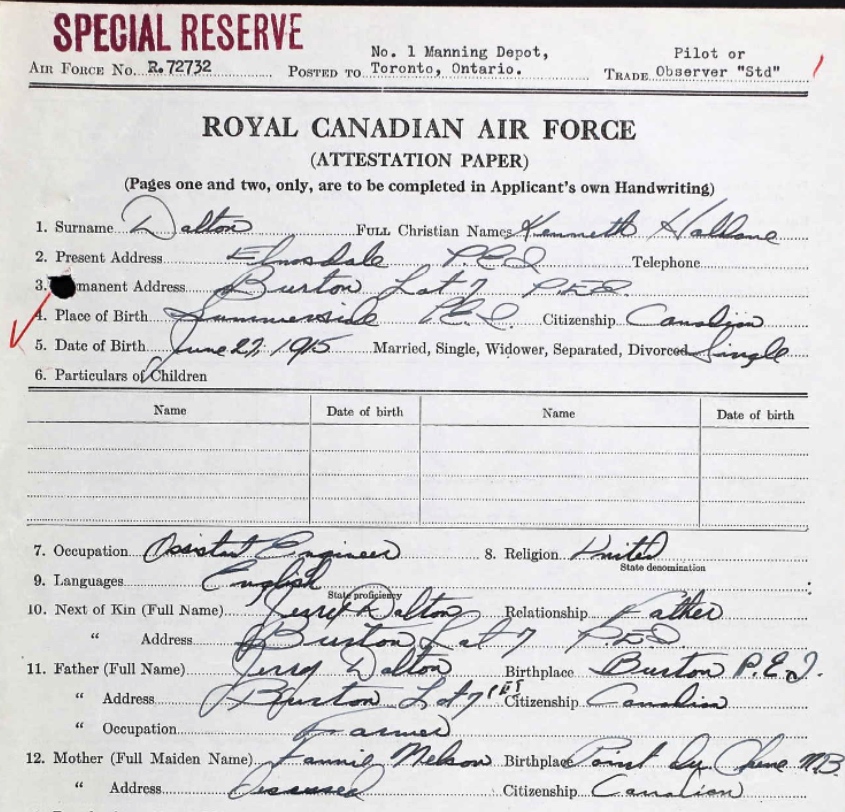 SPECIAL RESERVE
No. 1 Manning Depot, Pilot or
AIR FORCE NO. R.72732 POSTED TO Toronto, Ontario. TRADE Observer "Std"
ROYAL CANADIAN AIR FORCE
(ATTESTATION PAPER)
(Pages one and two, only, are to be completed in Applicant's own Handwriting)
1. Surname Dalton FULL Christian Names Kenneth
2. Present Address Elmsdale P.E.I Telephone
3. manent Address Burton Lot 7 P.E.I.
4. Place of Birth Summerside P.E.I. Citizenship Canadian
5. Date of Birth June 27, 1915 Married, Single, Widower, Separated, Divorced Single
6. Particulars of Children
Name Date of birth Name Date of birth
7. Occupation Assistant Engineer 8. Religion United
State denomination
9. Languages English
State proficiency
10. Next of Kin (Full Name) Dalton Relationship Father
" Address Burton Lot 7 P.E.I.
11. Father (Full Name) Jerry Dalton Birthplace Burton P.E.I.
" Address Burton Lot 7 P.E.I Citizenship Canadian
" Occupation Farmer
12. Mother (Full Maiden Name) Fannie Melson Birthplace Point du Chene N.B.
" Address Deceased Citizenship Canadian